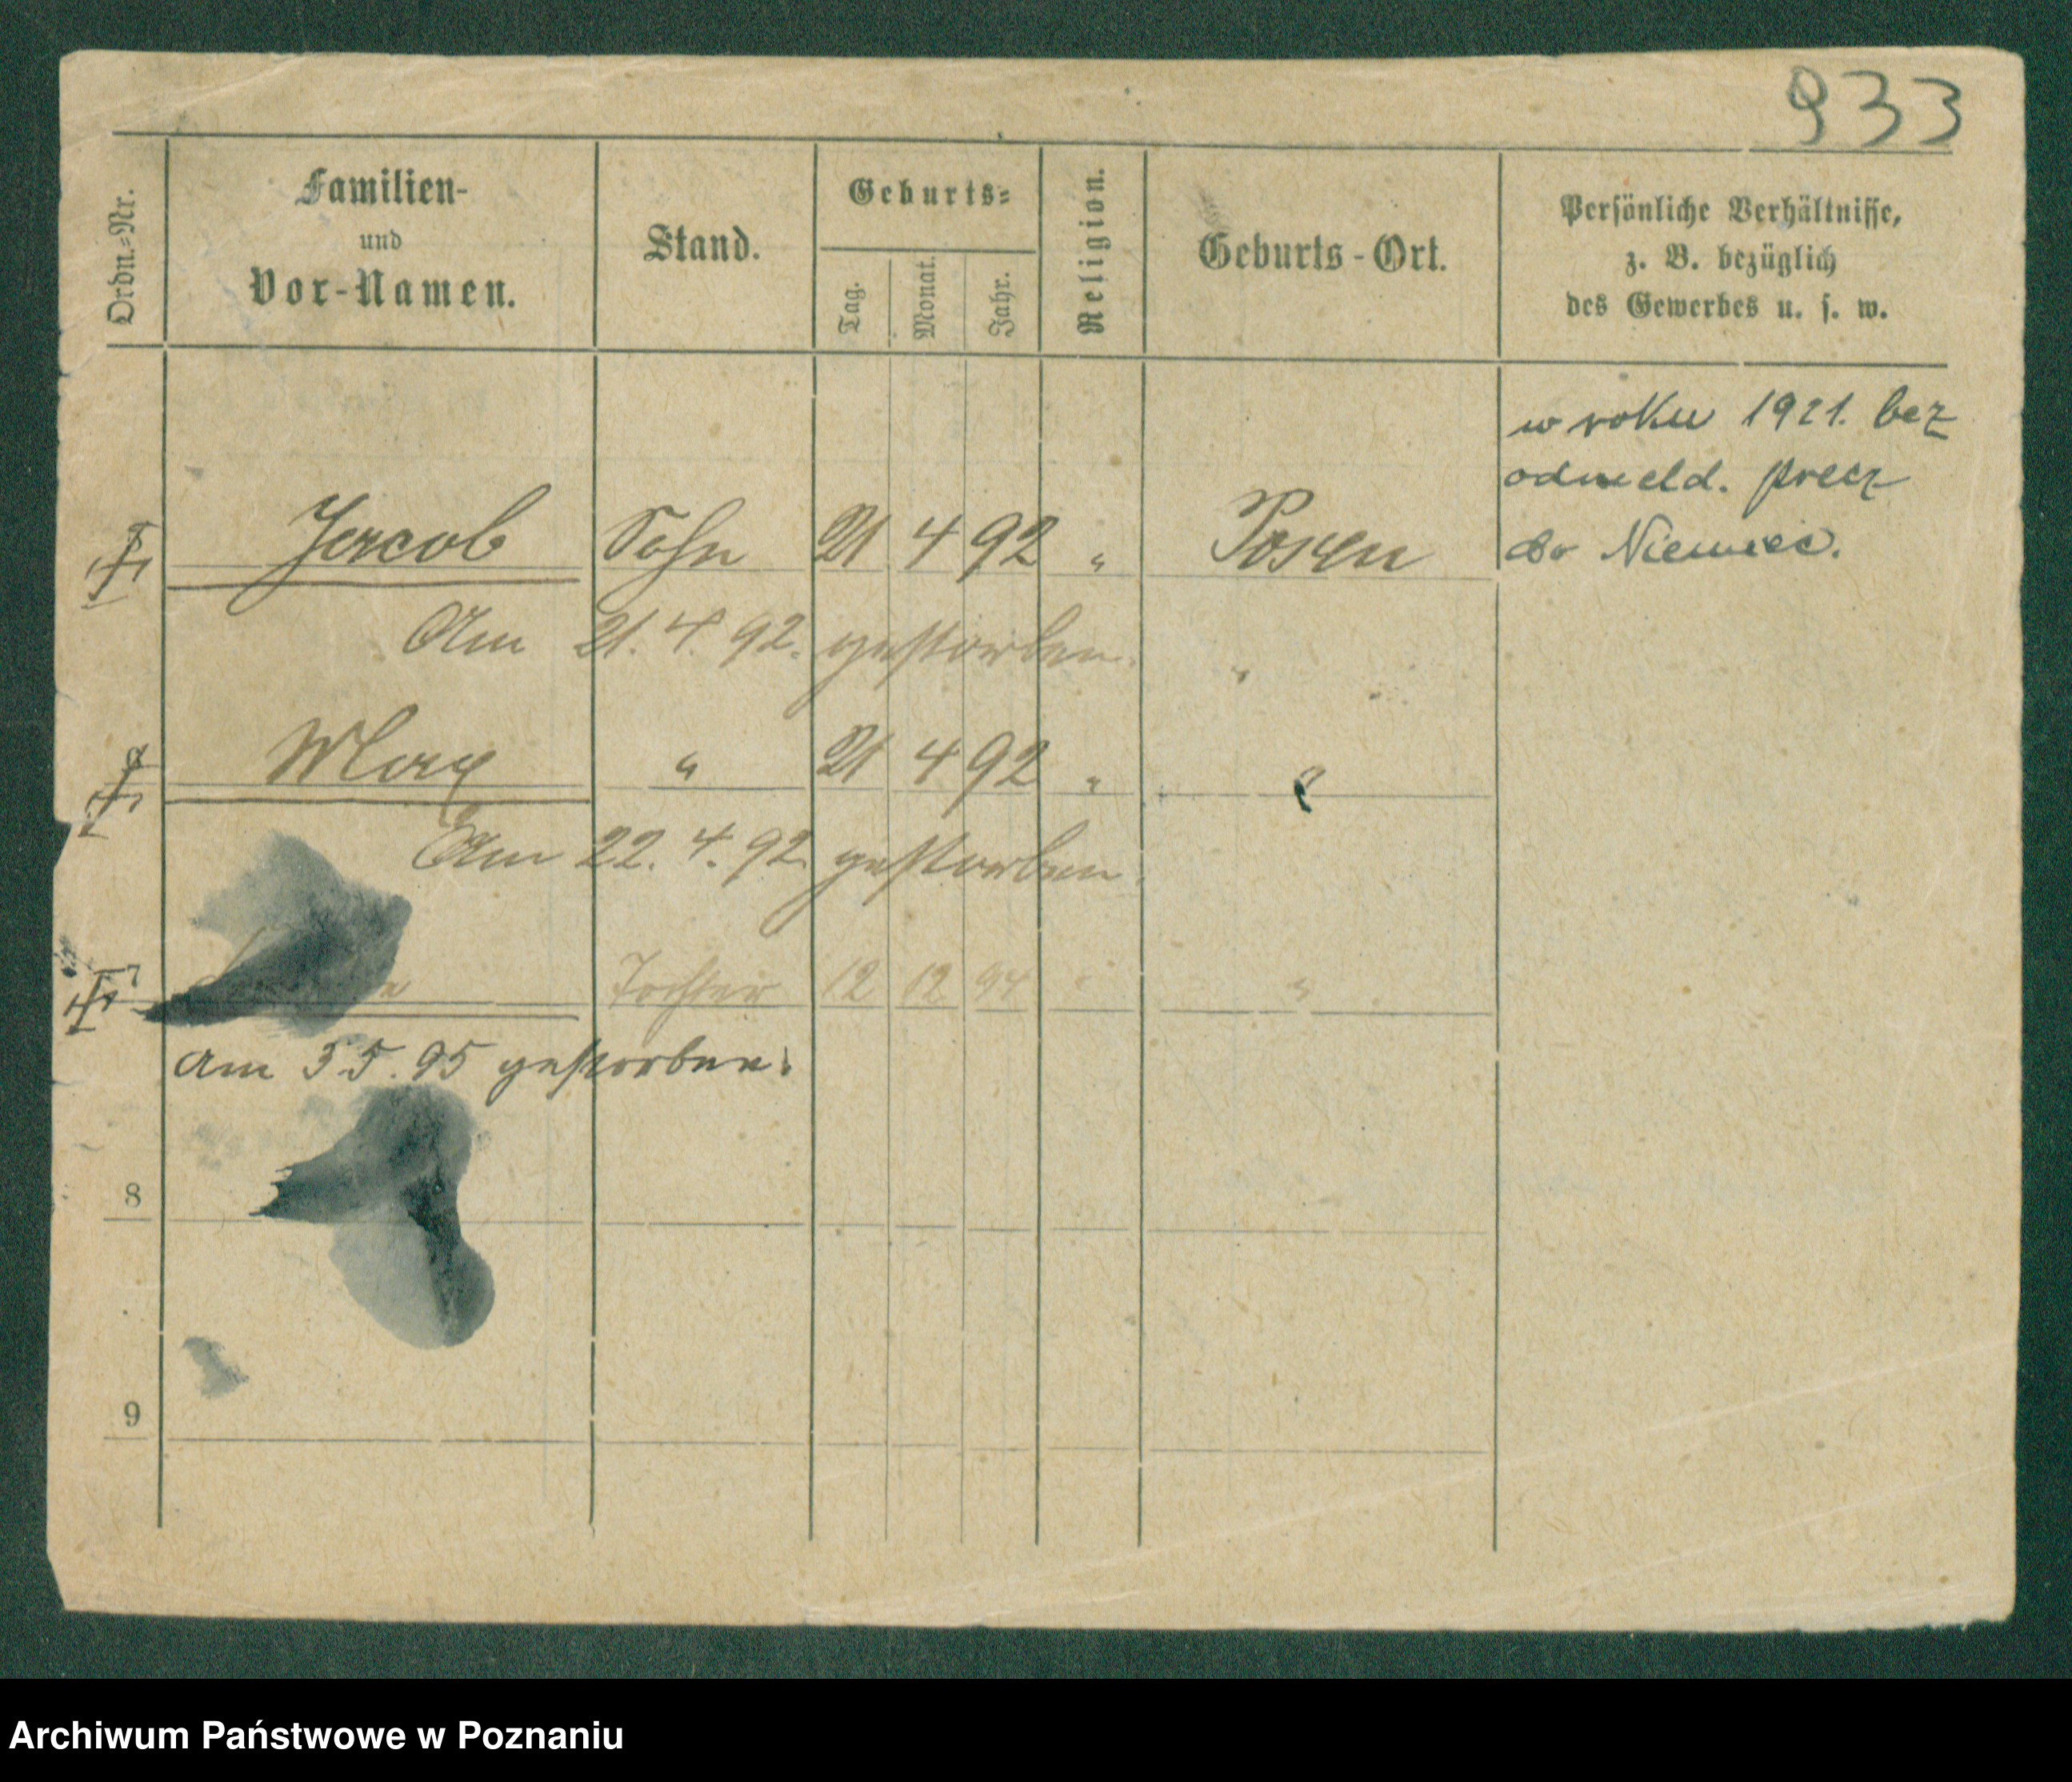 933
Ordn.=Nr.
Familien-
und
Vor-Namen.
Stand.
Geburts=
Tag.
Monat.
Jahr.
Religion.
Geburts-Ort.
Persönliche Verhältnisse,
z. B. bezüglich
des Gewerbes u. s. w.
w roku 1921. bez
odmeld. precz
do Niemiec.
Jacob Sohn 21 4 92 " Posen
Am 21. 4. 92. gestorben.
Max " 21 4 92 "
Am 22. 4. 92 gestorben.
7 Tochter 12 12 94 " "
am 3.5.95 gestorben.
8
9
Archiwum Państwowe w Poznaniu